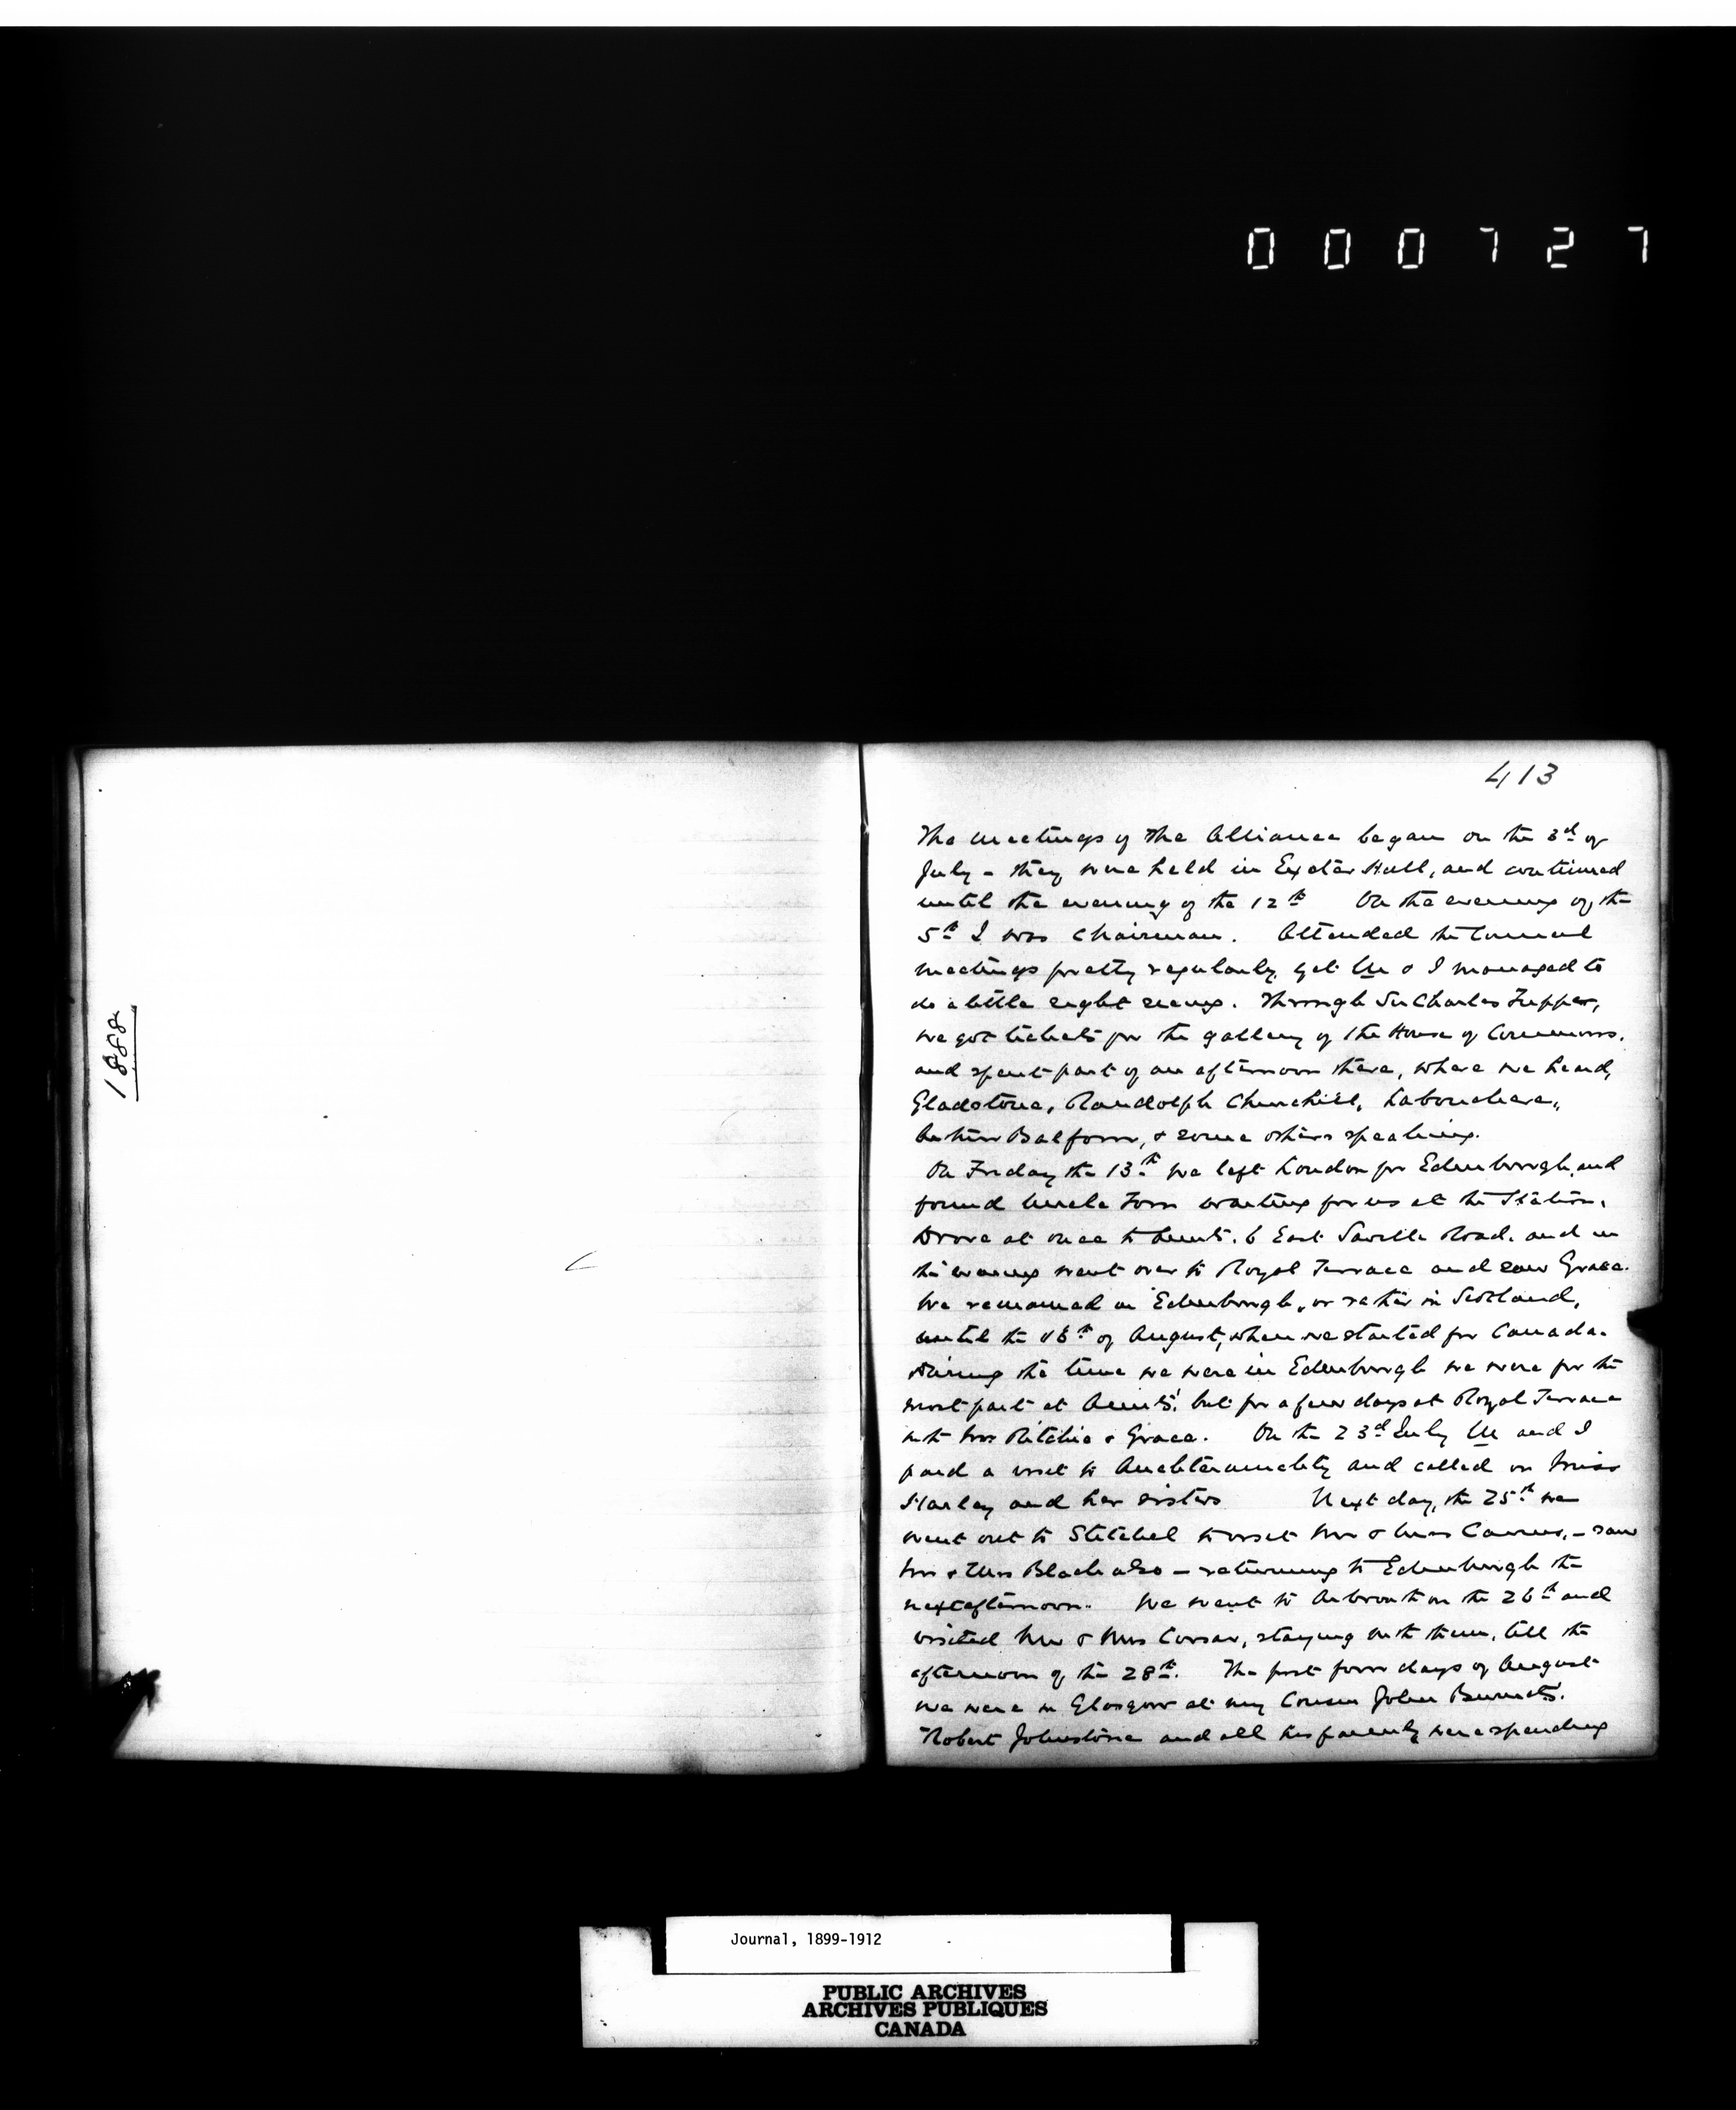 000727
1888
413
The meetings of the Alliance began on the 3d of
July - they were held in Exeter Hall, and continued
until the evening of the 12th On the evening of the
5th I was Chairman. Attended the Council
meetings pretty regularly, yet M & I managed to
do a little sight seeing. Through Sir Charles Tupper,
we got tickets for the gallery of the House of Commons.
and spent part of an afternoon there, where we heard,
Gladstone, Randolph Churchill, Labouchere,
Arthur Balfour, & some others speaking.
On Friday the 13th we left London for Edinburgh, and
found Uncle Tom waiting for us at the Station.
Drove at once to Aunts. 6 East Saville Road. and in
the evening went over to Royal Terrace and saw Grace.
We remained in Edinburgh, or rather in Scotland,
until the 16th of August, when we started for Canada.
During the time we were in Edinburgh we were for the
most part at Aunts', but for a few days at Royal Terrace
with Mrs Ritchie & Grace. On the 23d July M and I
paid a visit to Auchtermuchty and called on Miss
and her sisters Next day, the 25th we
went out to Stitchel to visit Mr & Mrs Cairns, - saw
Mr & Mrs Black also - returning to Edinburgh the
next afternoon. We went to Arbroath on the 26th and
visited Mr & Mrs Corsar, staying with them, till the
afternoon of the 28th. The first four days of August
we were in Glasgow at my Cousin John Burnets.
Robert Johnstone and all his family were spending
Journal, 1899-1912
PUBLIC ARCHIVES
ARCHIVES PUBLIQUES
CANADA